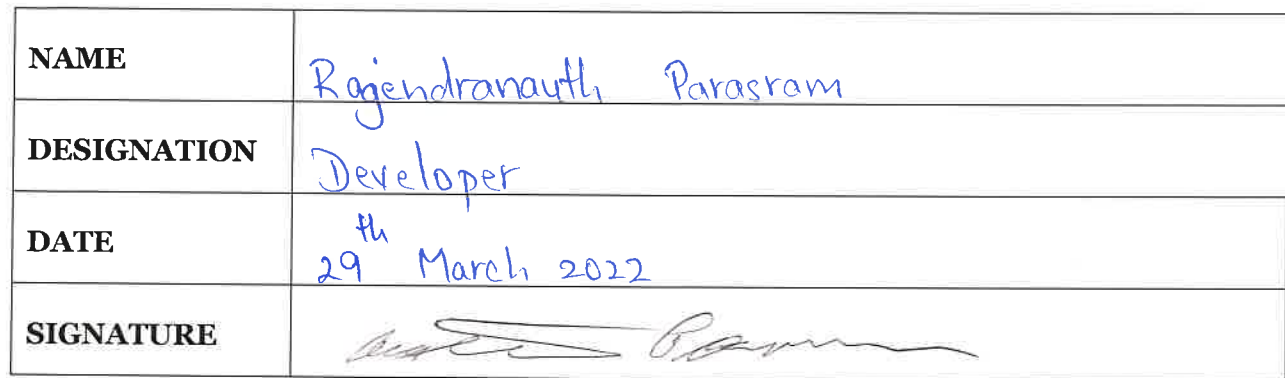 NAME Rajendranauth Parasram
DESIGNATION Developer
DATE 29th March 2022
SIGNATURE